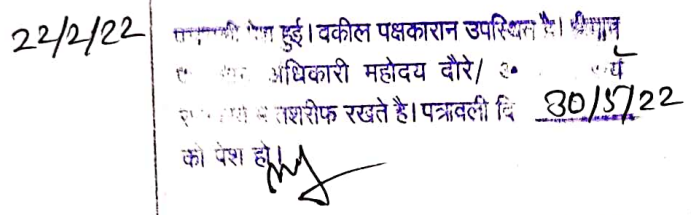 22/2/22
हुई। वकील पक्षकारान उपस्थित है।
अधिकारी महोदय दौरे/
तशरीफ रखते है। पत्रावली दि 30/5/22
को पेश हो।